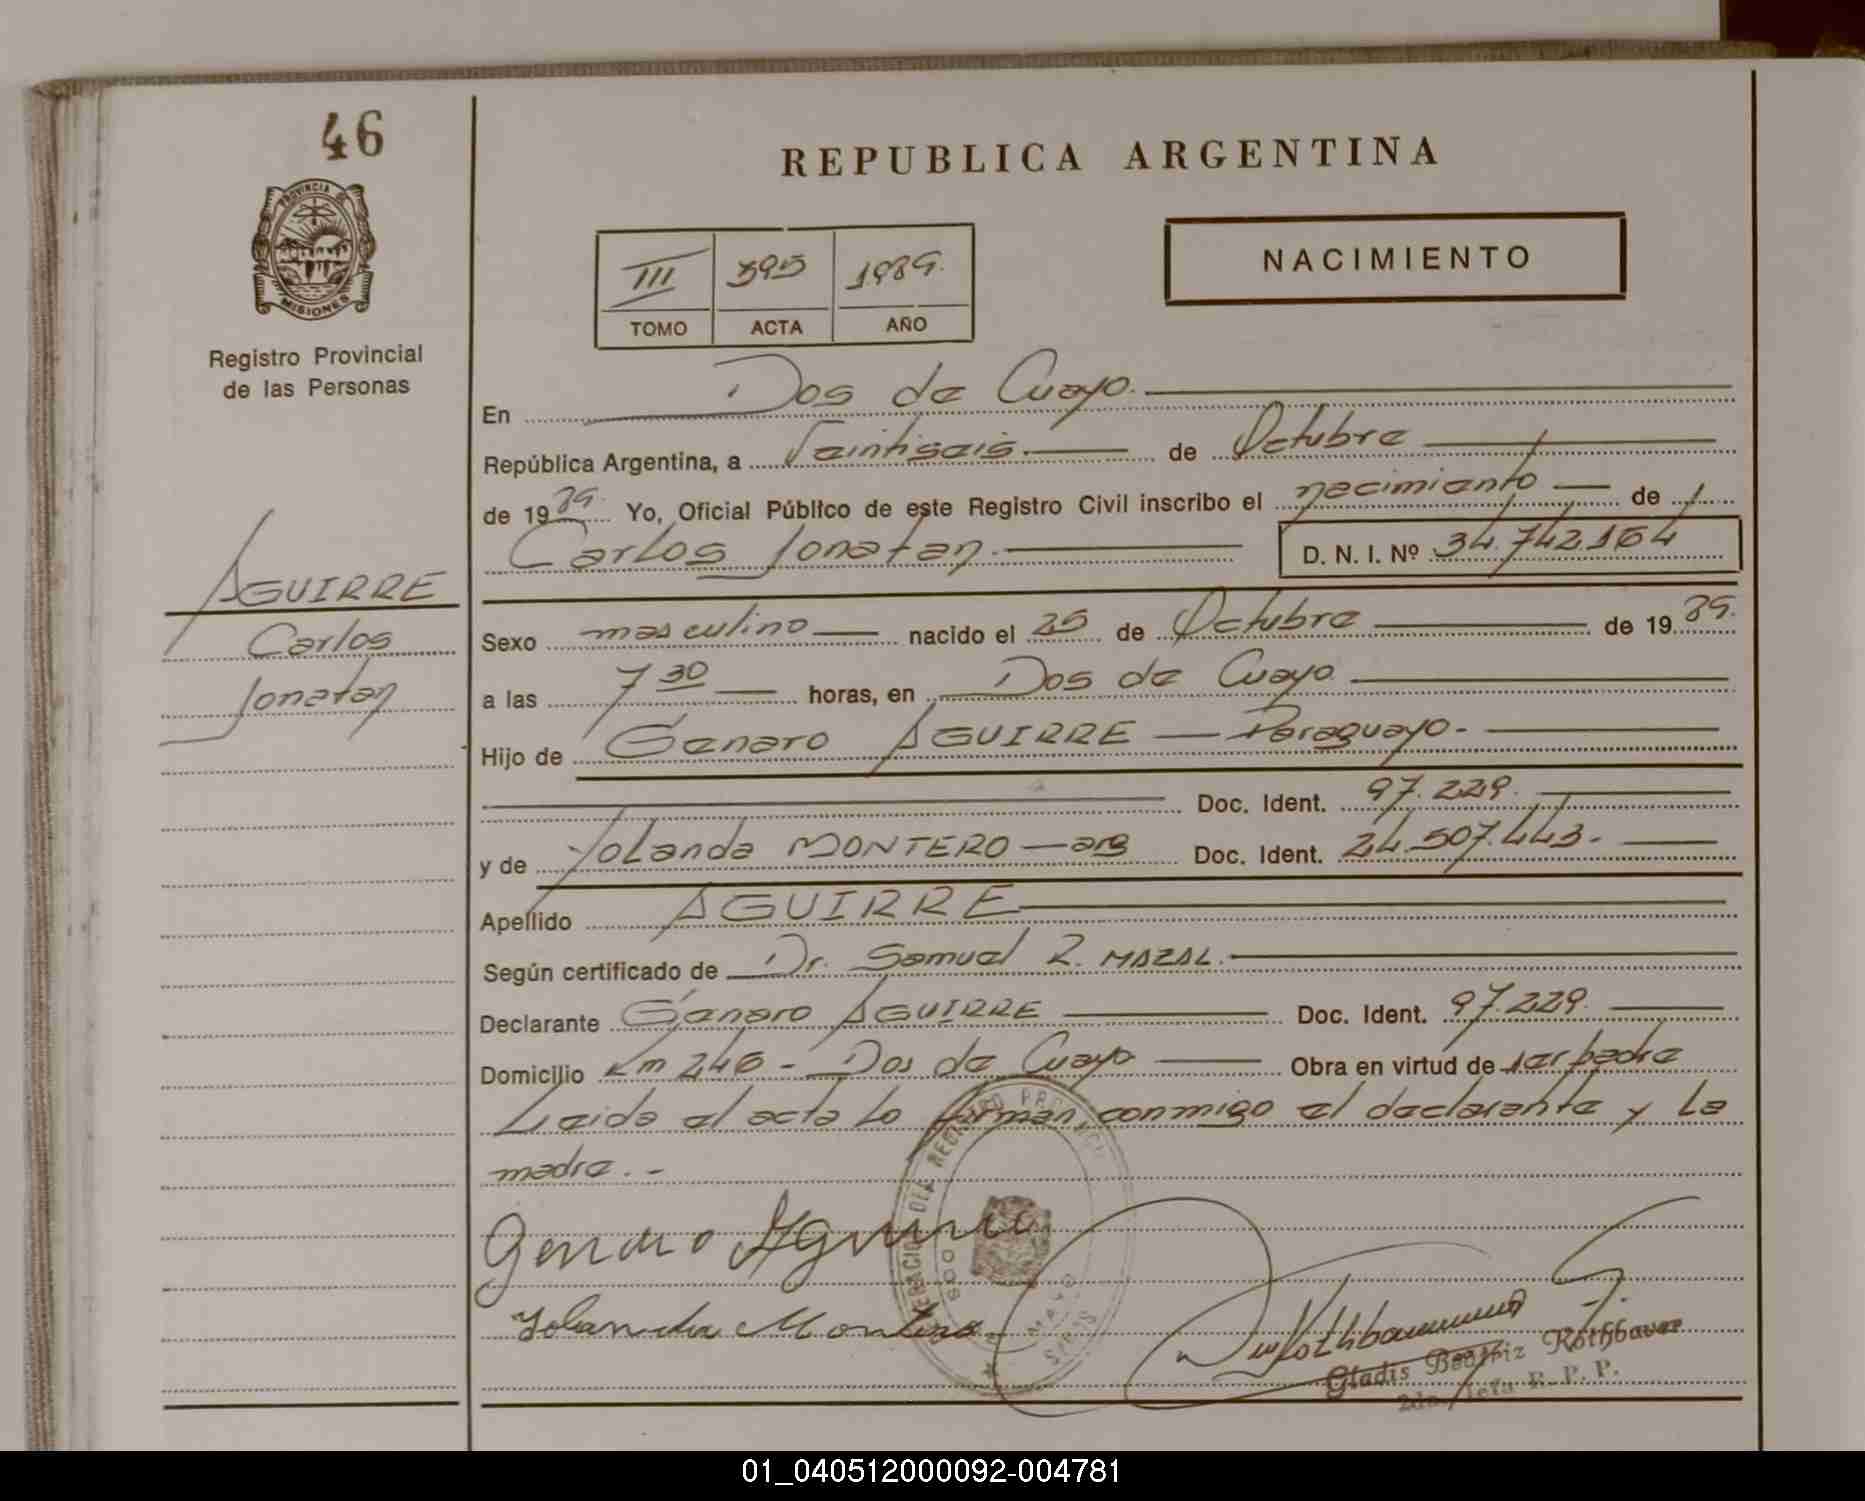 46
PROVINCIA DE
MISIONES
Registro Provincial
de las Personas
AGUIRRE
Carlos
Jonatan
REPUBLICA ARGENTINA
III 395 1989.
TOMO ACTA AÑO
NACIMIENTO
En Dos de Cuayo.
República Argentina, a Veintiseis. de Octubre
de 1989. Yo, Oficial Público de este Registro Civil inscribo el nacimiento de
Carlos Jonatan. D. N. I. Nº 34.742.164
Sexo masculino nacido el 25 de Octubre de 1989.
a las 7 30 horas, en Dos de Cuayo
Hijo de Genaro AGUIRRE — Paraguayo.-
Doc. Ident. 97.229.
y de Yolanda MONTERO — arg Doc. Ident. 24.507.443.-
Apellido AGUIRRE
Según certificado de Dr. Samuel R. MAZAL.
Declarante Genaro AGUIRRE Doc. Ident. 97.229.
Domicilio Km 246 - Dos de Cuayo Obra en virtud de ser padre
Leida el acta lo firman conmigo el declarante y la
madre.-
Genaro Aguirre
Yolanda Montero
Gladis Beatriz Rothbauer
2da. Jefa R. P. P.
01_040512000092-004781